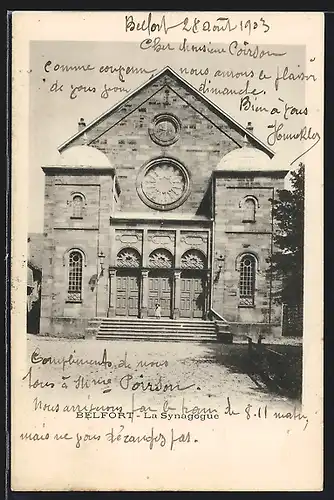 Belfort 28 août 1903
Cher Monsieur Poirson
Comme convenu nous aurons le plaisir
de vous dimanche.
Bien à vous
Compliments de nous
tous à Mme Poirson.
Nous arriverons par le train de 8.11 matin,
mais ne vous dérangez pas.
BELFORT - La Synagogue